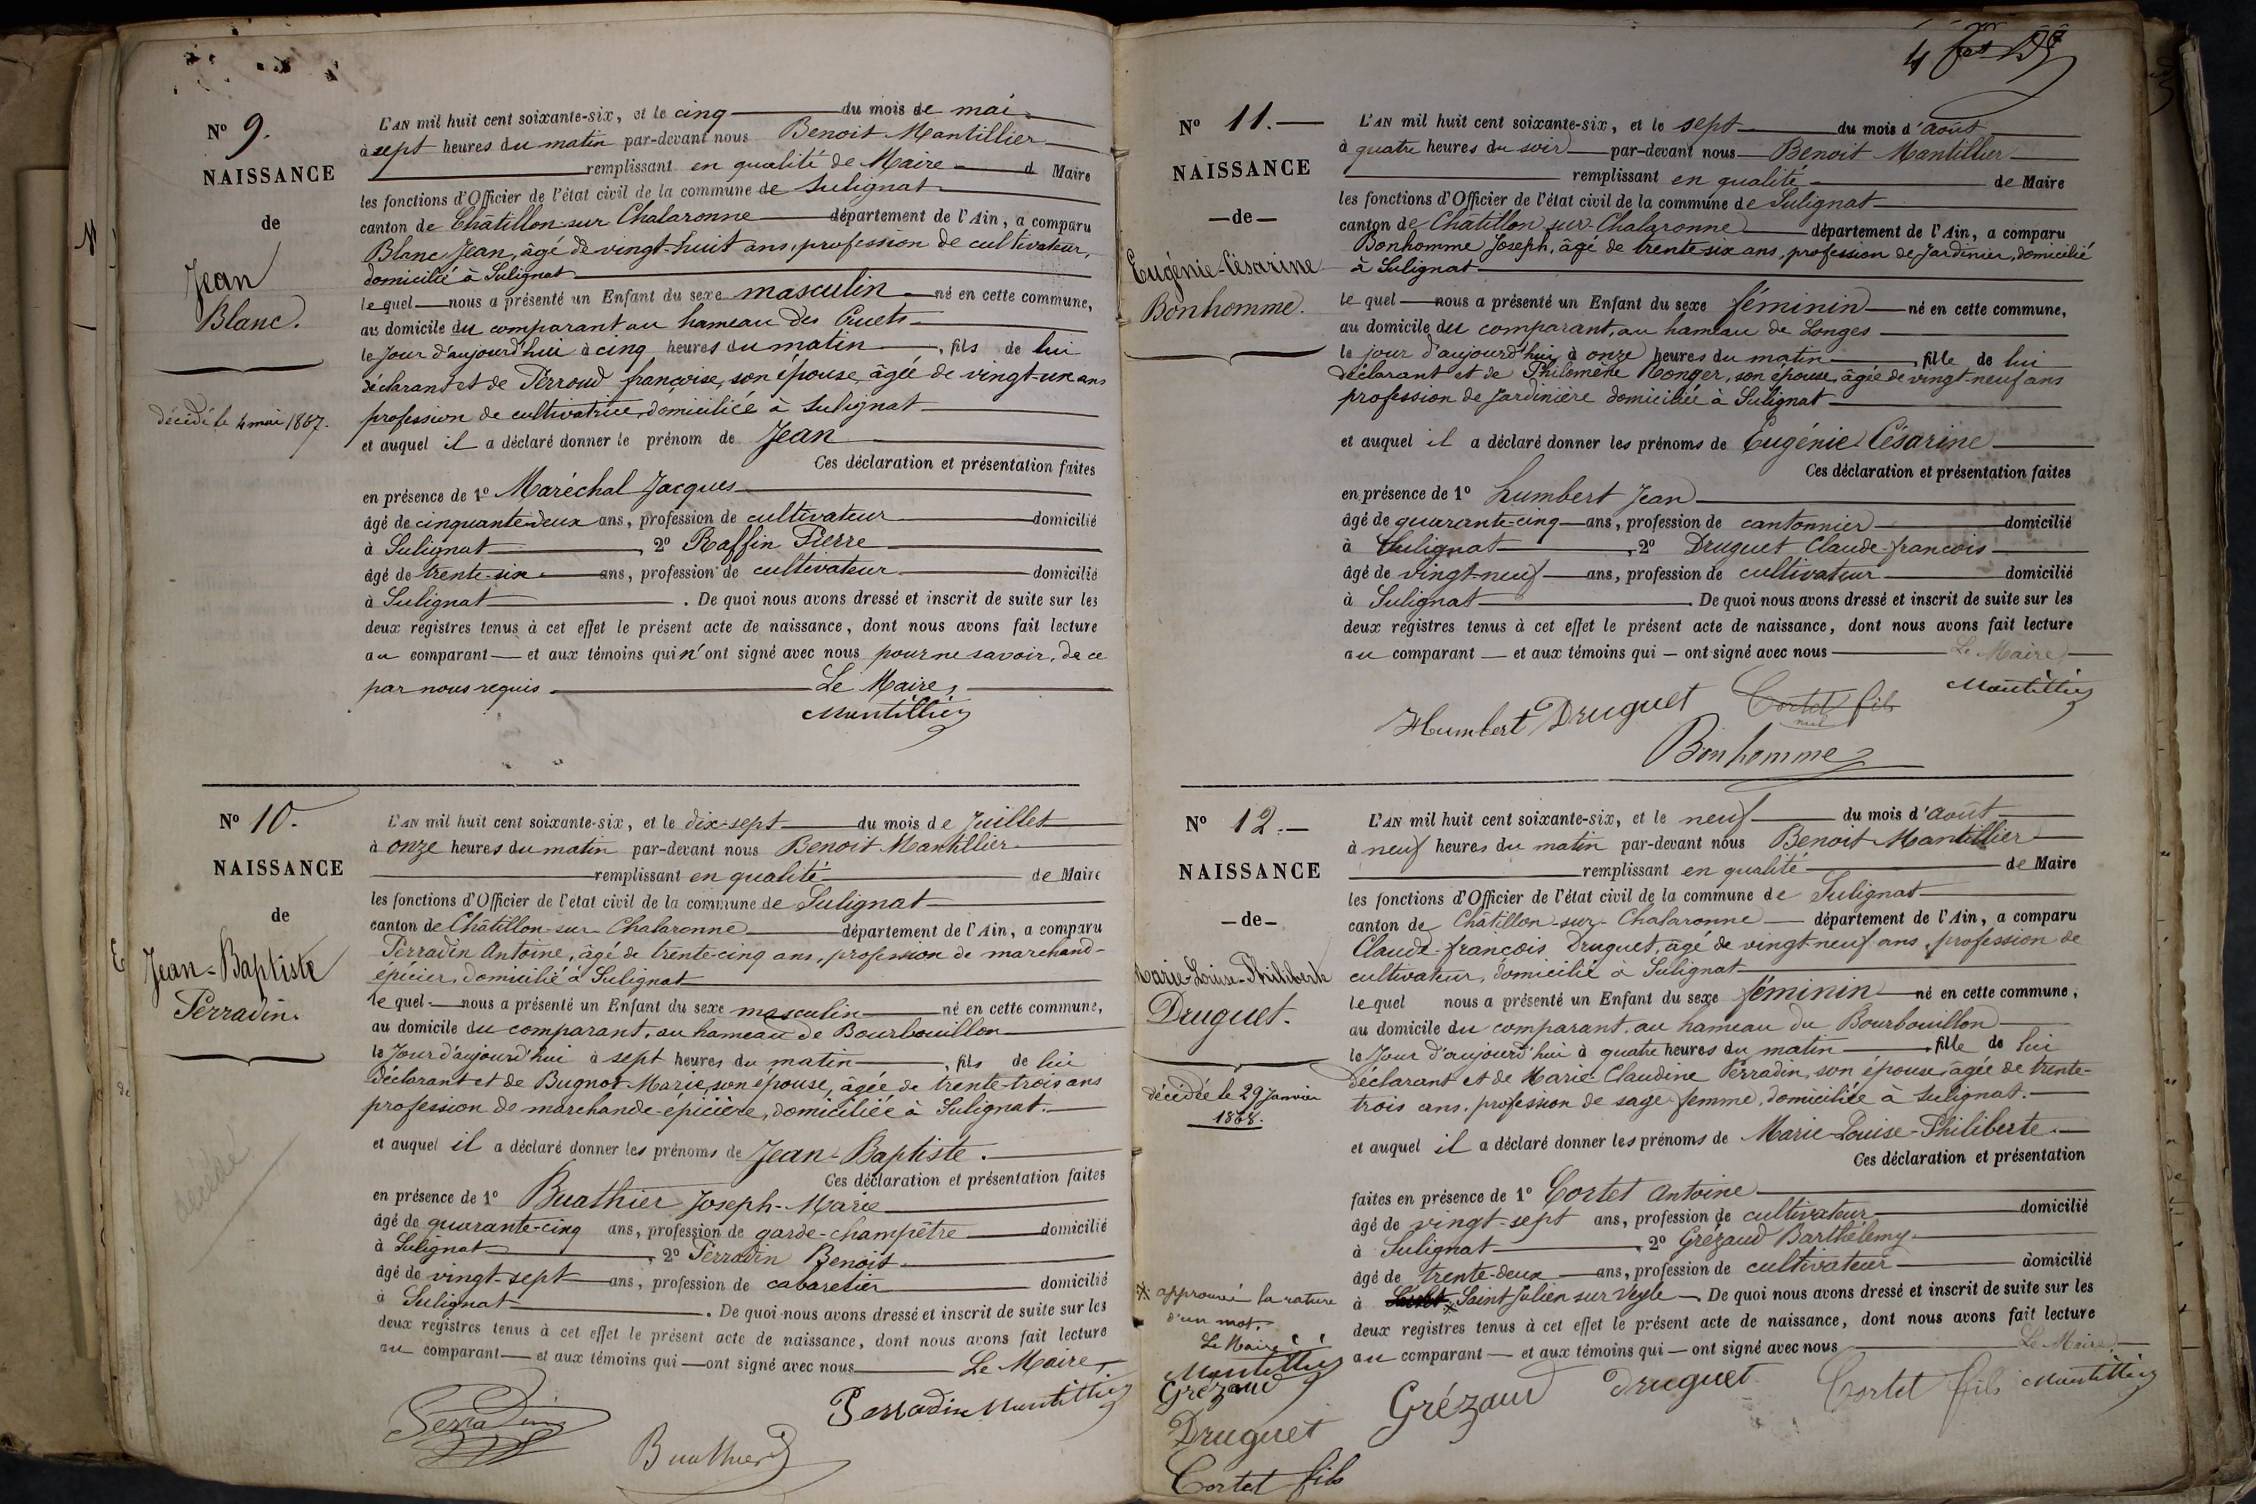 Nº 9.
NAISSANCE
de
Jean
Blanc.
décédé le 4 mai 1867.
L'AN mil huit cent soixante-six, et le cinq du mois de mai
à sept heures du matin par-devant nous Benoit Mantillier
remplissant en qualité de Maire d Maire
les fonctions d'Officier de l'état civil de la commune de Sulignat
canton de Châtillon-sur Chalaronne département de l'Ain, a comparu
Blanc Jean, âgé de vingt-huit ans, profession de cultivateur,
domicilié à Sulignat
lequel nous a présenté un Enfant du sexe masculin né en cette commune,
au domicile du comparant au hameau des Cruets
le Jour d'aujourd'hui à cinq heures du matin, fils de lui
déclarant et de Perroud françoise, son épouse, âgée de vingt-un ans
profession de cultivatrice, domiciliée à Sulignat
et auquel il a déclaré donner le prénom de Jean
Ces déclaration et présentation faites
en présence de 1º Maréchal Jacques
âgé de cinquante-deux ans, profession de cultivateur domicilié
à Sulignat, 2º Raffin Pierre
âgé de trente-six ans, profession de cultivateur domicilié
à Sulignat. De quoi nous avons dressé et inscrit de suite sur les
deux registres tenus à cet effet le présent acte de naissance, dont nous avons fait lecture
au comparant et aux témoins qui n'ont signé avec nous pour ne savoir, de ce
par nous requis Le Maire,
Mantillier
Nº 10.
NAISSANCE
de
Jean-Baptiste
Perradin.
décédé
L'AN mil huit cent soixante-six, et le dix-sept du mois de Juillet
à onze heures du matin par-devant nous Benoit Mantillier
remplissant en qualité de Maire
les fonctions d'Officier de l'état civil de la commune de Sulignat
canton de Châtillon-sur-Chalaronne département de l'Ain, a comparu
Perradin Antoine, âgé de trente-cinq ans, profession de marchand-
épicier, domicilié à Sulignat
lequel nous a présenté un Enfant du sexe masculin né en cette commune,
au domicile du comparant, au hameau de Bourbouillon
le Jour d'aujourd'hui à sept heures du matin, fils de lui
déclarant et de Bugnot Marie, son épouse, âgée de trente-trois ans
profession de marchande-épicière, domiciliée à Sulignat.
et auquel il a déclaré donner les prénoms de Jean-Baptiste.
Ces déclaration et présentation faites
en présence de 1º Buathier Joseph-Marie
âgé de quarante-cinq ans, profession de garde-champêtre domicilié
à Sulignat, 2º Perradin Benoit
âgé de vingt-sept ans, profession de cabaretier domicilié
à Sulignat. De quoi nous avons dressé et inscrit de suite sur les
deux registres tenus à cet effet le présent acte de naissance, dont nous avons fait lecture
au comparant et aux témoins qui ont signé avec nous Le Maire,
Perradin Perradin Mantillier
Buathier
Nº 11.
NAISSANCE
de
Eugénie-Césarine
Bonhomme.
L'AN mil huit cent soixante-six, et le sept du mois d'août
à quatre heures du soir par-devant nous Benoit Mantillier
remplissant en qualité de Maire
les fonctions d'Officier de l'état civil de la commune de Sulignat
canton de Châtillon-sur-Chalaronne département de l'Ain, a comparu
Bonhomme Joseph, âgé de trente-six ans, profession de Jardinier, domicilié
à Sulignat
lequel nous a présenté un Enfant du sexe féminin né en cette commune,
au domicile du comparant, au hameau de Longes
le jour d'aujourd'hui à onze heures du matin, fille de lui
déclarant et de Philomène Ronger, son épouse, âgée de vingt-neuf ans
profession de Jardinière domiciliée à Sulignat
et auquel il a déclaré donner les prénoms de Eugénie Césarine
Ces déclaration et présentation faites
en présence de 1º humbert Jean
âgé de quarante-cinq ans, profession de cantonnier domicilié
à Sulignat, 2º Druguet Claude-francois
âgé de vingt-neuf ans, profession de cultivateur domicilié
à Sulignat. De quoi nous avons dressé et inscrit de suite sur les
deux registres tenus à cet effet le présent acte de naissance, dont nous avons fait lecture
au comparant et aux témoins qui ont signé avec nous Le Maire
Humbert Druguet Cortet fils Mantillier
nul
Bonhomme
Nº 12.
NAISSANCE
de
Marie-Louise-Philiberte
Druguet.
décédée le 29 Janvier
1868.
L'AN mil huit cent soixante-six, et le neuf du mois d'août
à neuf heures du matin par-devant nous Benoit Mantillier
remplissant en qualité de Maire
les fonctions d'Officier de l'état civil de la commune de Sulignat
canton de Châtillon-sur-Chalaronne département de l'Ain, a comparu
Claude-françois Druguet, âgé de vingt neuf ans, profession de
cultivateur, domicilié à Sulignat
lequel nous a présenté un Enfant du sexe féminin né en cette commune,
au domicile du comparant, au hameau du Bourbouillon
le Jour d'aujourd'hui à quatre heures du matin, fille de lui
déclarant et de Marie Claudine Perradin, son épouse, agée de trente-
trois ans, profession de sage femme, domiciliée à Sulignat.
et auquel il a déclaré donner les prénoms de Marie-Louise-Philiberte.
Ces déclaration et présentation
faites en présence de 1º Cortet Antoine
âgé de vingt-sept ans, profession de cultivateur domicilié
à Sulignat, 2º Grézaud Barthélemy
âgé de trente-deux ans, profession de cultivateur domicilié
à Saint Julien sur Veyle. De quoi nous avons dressé et inscrit de suite sur les
deux registres tenus à cet effet le présent acte de naissance, dont nous avons fait lecture
au comparant et aux témoins qui ont signé avec nous Le Maire
Grézaud Druguet Cortet fils Mantillier
※ approuvé la rature
d'un mot.
Le Maire
Mantillier
Grézaud
Druguet
Cortet fils